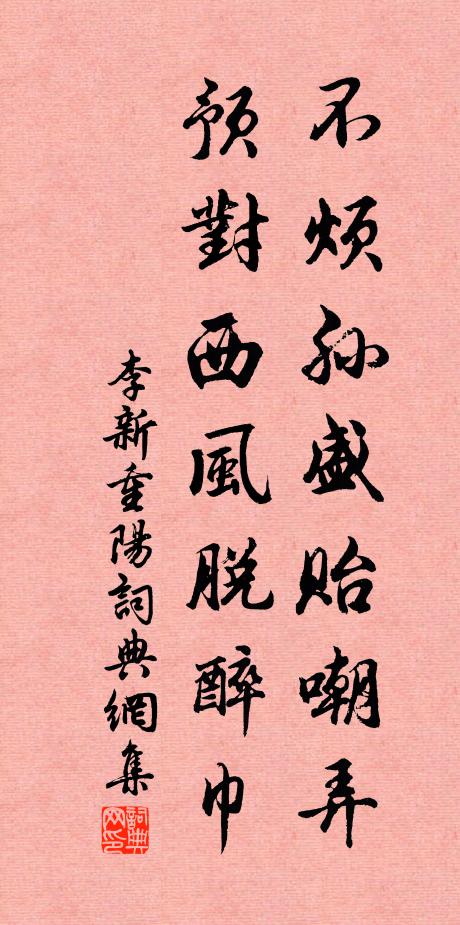 不烦孙盛贻嘲弄
預對西風脱醉巾
李新重陽詞典網集
詞典网印